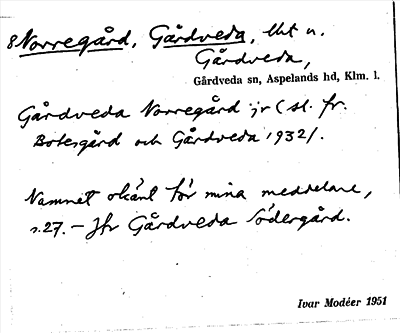 8 Norregård, Gårdveda, lht u.
Gårdveda,
Gårdveda sn, Aspelands hd, Klm. l.
Gårdveda Norregård jr (sl. fr.
Botesgård och Gårdveda 1932/.
Namnet okänt för mina meddelare,
s. 27. – Jfr Gårdveda Södergård.
Ivar Modéer 1951